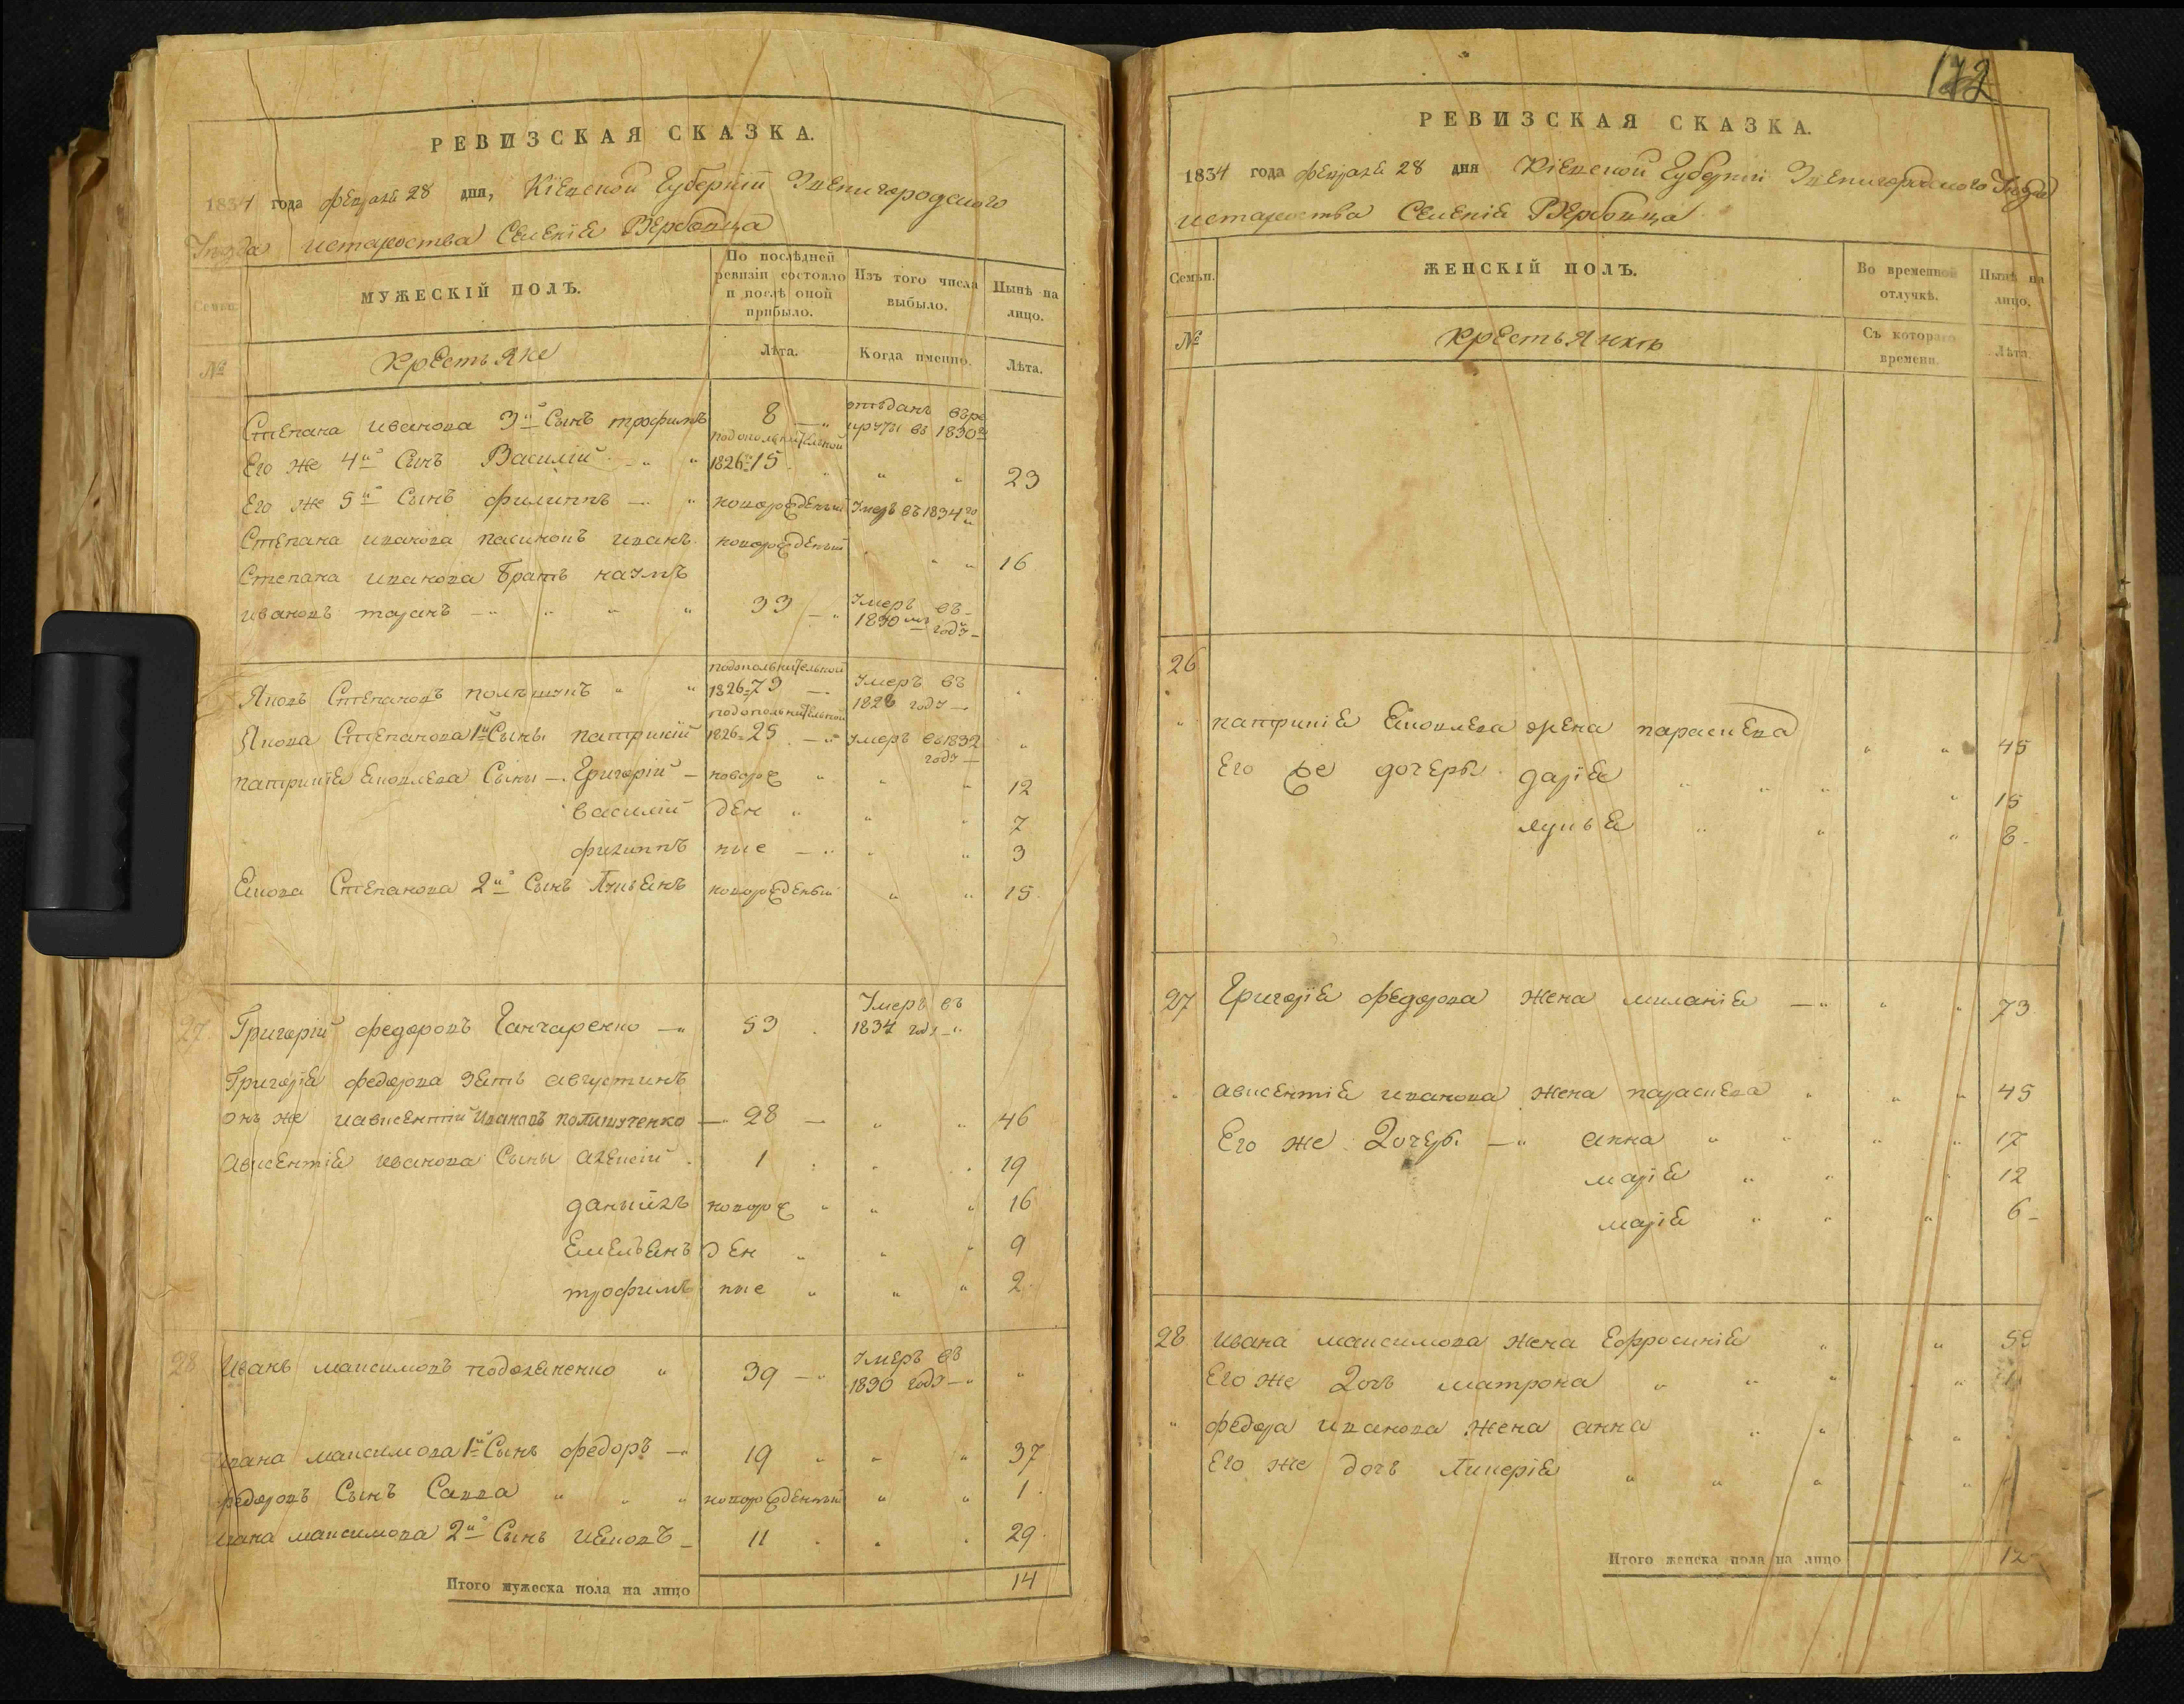 РЕВИЗСКАЯ СКАЗКА.
1834 года февраля 28 дня, Кіевской Губерніи Звенигородского
Уезда истароства Селенія Вербовца
Семьи.
МУЖЕСКІЙ ПОЛЪ.
По послѣдней ревизіи состояло и послѣ оной прибыло.
Изъ того числа выбыло.
Нынѣ на лицо.
№
крестьяне
Лѣта.
Когда именно.
Лѣта.
Степана иванова 3й Сынъ трофимъ 8 отъданъ въре круты въ 1830
Его же 4й Сынъ Василій подополънительной 1826 15 23
Его же 5й Сынъ филиппъ новорожденый Умеръ въ 1834
Степана иванова пасинокъ иванъ новорожденый 16
Степана иванова Братъ наумъ
ивановъ таранъ 33 Умеръ въ 1830 году
Яковъ Степановъ полѣшукъ подополънительной 1826 79 Умеръ въ 1828 году
Якова Степанова 1й Сынъ патрикій подополънительной 1826 25 Умеръ въ 1832 году
патрикія яковлева Сыны Григорій новорож 12
василій ден 7
филиппъ ные 3
Якова Степанова 2й Сынъ Лукъянъ новорожденый 15
27 Григорій федоровъ Ганчаренко 53 Умеръ въ 1834 году
Григорія федорова зять августинъ
онъ же иавксентій ивановъ полишученко 28 46
Авксентія иванова Сыны алексій 1 19
даныилъ новорож 16
Емелъянъ ден 9
трофимъ ные 2
28 Иванъ максимовъ подоляненко 39 Умеръ въ 1830 году
ивана максимова 1й Сынъ федоръ 19 37
федоровъ Сынъ Савва новорожденый 1
ивана максимова 2й Сынъ ияковъ 11 29
Итого мужеска пола на лицо 14
172
РЕВИЗСКАЯ СКАЗКА.
1834 года февраля 28 дня Кіевской Губерніи Звенигородского Уезда
истароства Селенія Вербовца
Семьи.
ЖЕНСКІЙ ПОЛЪ.
Во временной отлучкѣ.
Нынѣ на лицо.
№
крестьянкѣ
Съ котораго времени.
Лѣта.
26
патрикія яковлева жена параскева 45
Его же дочеры дарія 15
лукъя 8
27 Григорія федорова жена миланія 73
авксентія иванова жена параскева 45
Его же дочеры анна 17
марія 12
марія 6
28 ивана максимова жена Ефросинія 55
Его же дочъ матрона
федора иванова жена анна
Его же дочъ Ликерія
Итого женска пола на лицо 12